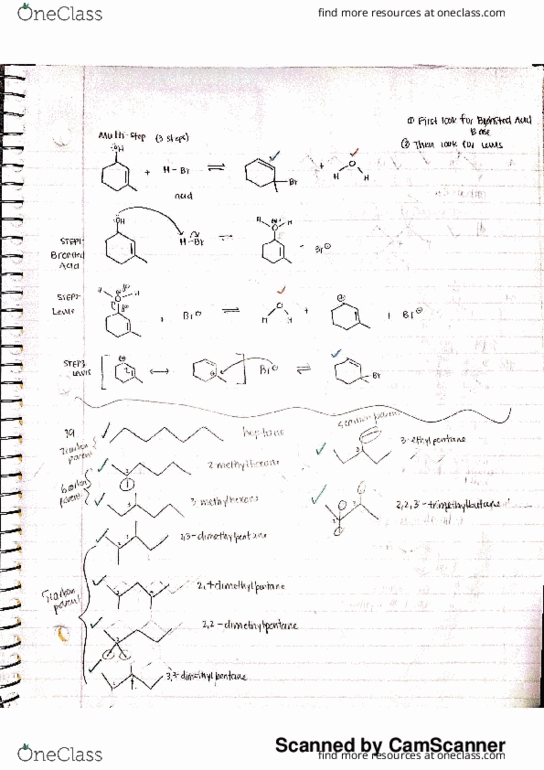 OneClass
find more resources at oneclass.com
① First look for Brønsted Acid
Base
② Then look for Lewis
Multi-Step (3 steps)
OH
+ H-Br ⇌
Br
+ O
H H
acid
STEP1-
Bronsted
Acid
OH
H-Br ⇌
H H
Br⊖
STEP2-
Lewis
Br⊖ ⇌
O
H H
+
⊕
Br⊖
STEP3
Lewis
[ ⊕ ↔ ⊕ ] Br⊖ ⇌
Br
7 carbon
parent
heptane
3-ethylpentane
6 carbon
parent
2-methylhexane
3-methylhexane
2,2,3-trimethylbutane
5 carbon
parent
2,3-dimethylpentane
2,4-dimethylpentane
2,2-dimethylpentane
3,3-dimethylpentane
Scanned by CamScanner
OneClass
find more resources at oneclass.com